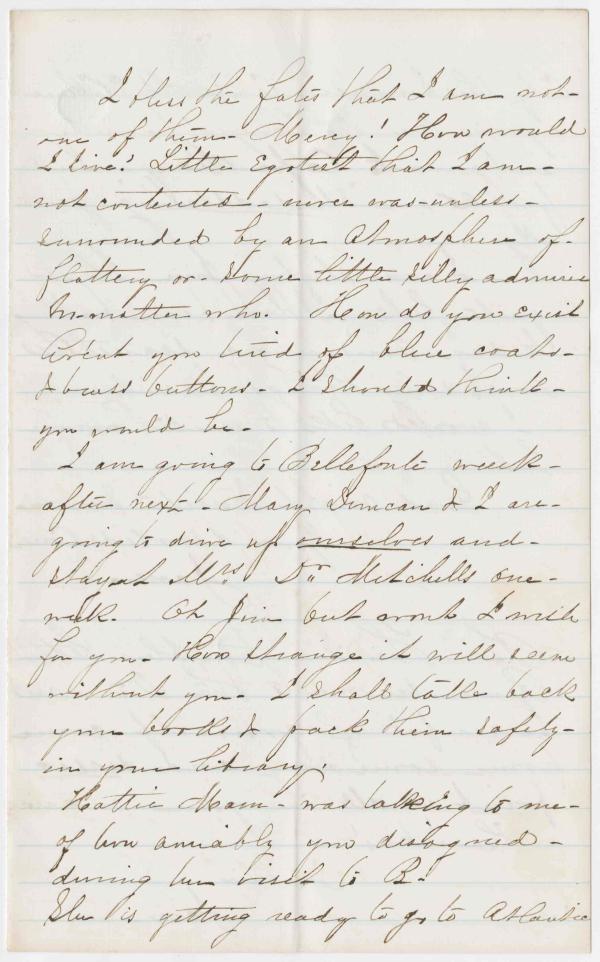 I bless the fates that I am not-
one of them- Mercy! How would
I live! Little Egotist that I am-
not contented- never was-unless-
surrounded by an atmosphere of-
flattery or- some little silly admirer
no-matter who. How do you exist
Arent you tired of blue coats-
& brass buttons- I should think-
you would be-
I am going to Bellefonte week-
after next- Mary Duncan & I are-
going to drive up ourselves and-
stay at Mrs. Dr. Mitchells one-
week. Oh Jim but wont I wish
for you- How strange it will seem
without you- I shall take back
your books & pack them safely-
in your library.
Hattie Mann- was talking to me-
of how amiably you disagreed-
during her visit to B.
She is getting ready to go to Atlantic